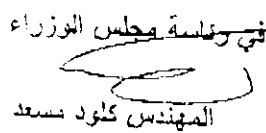 في رئاسة مجلس الوزراء
المهندس كلود مسعد